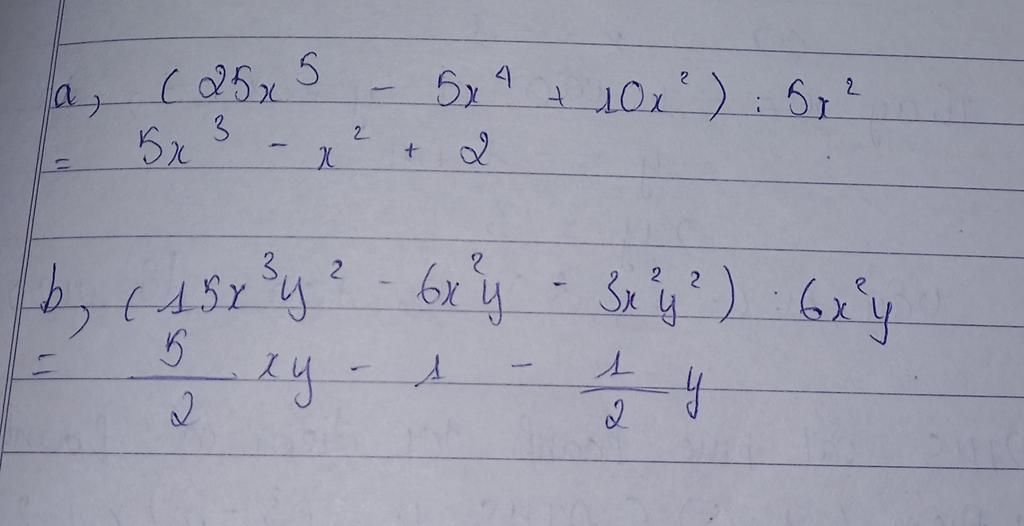 a, (25x⁵ - 5x⁴ + 10x²) : 5x²
= 5x³ - x² + 2
b, (15x³y² - 6x²y - 3x²y²) : 6x²y
= 5/2 xy - 1 - 1/2 y